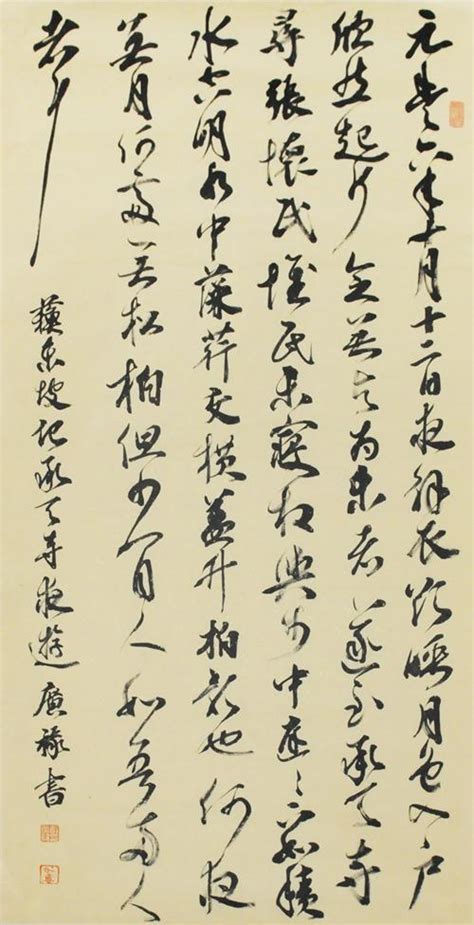 元豐六年十月十二日夜解衣欲睡月色入戶
欣然起行念無與為樂者遂至承天寺
尋張懷民懷民未寢相與步中庭〻下如積
水空明水中藻荇交橫蓋竹柏影也何夜
無月何處無松柏但少閒人如吾兩人
者耳
蘇東坡記承天寺夜遊 廣祿書